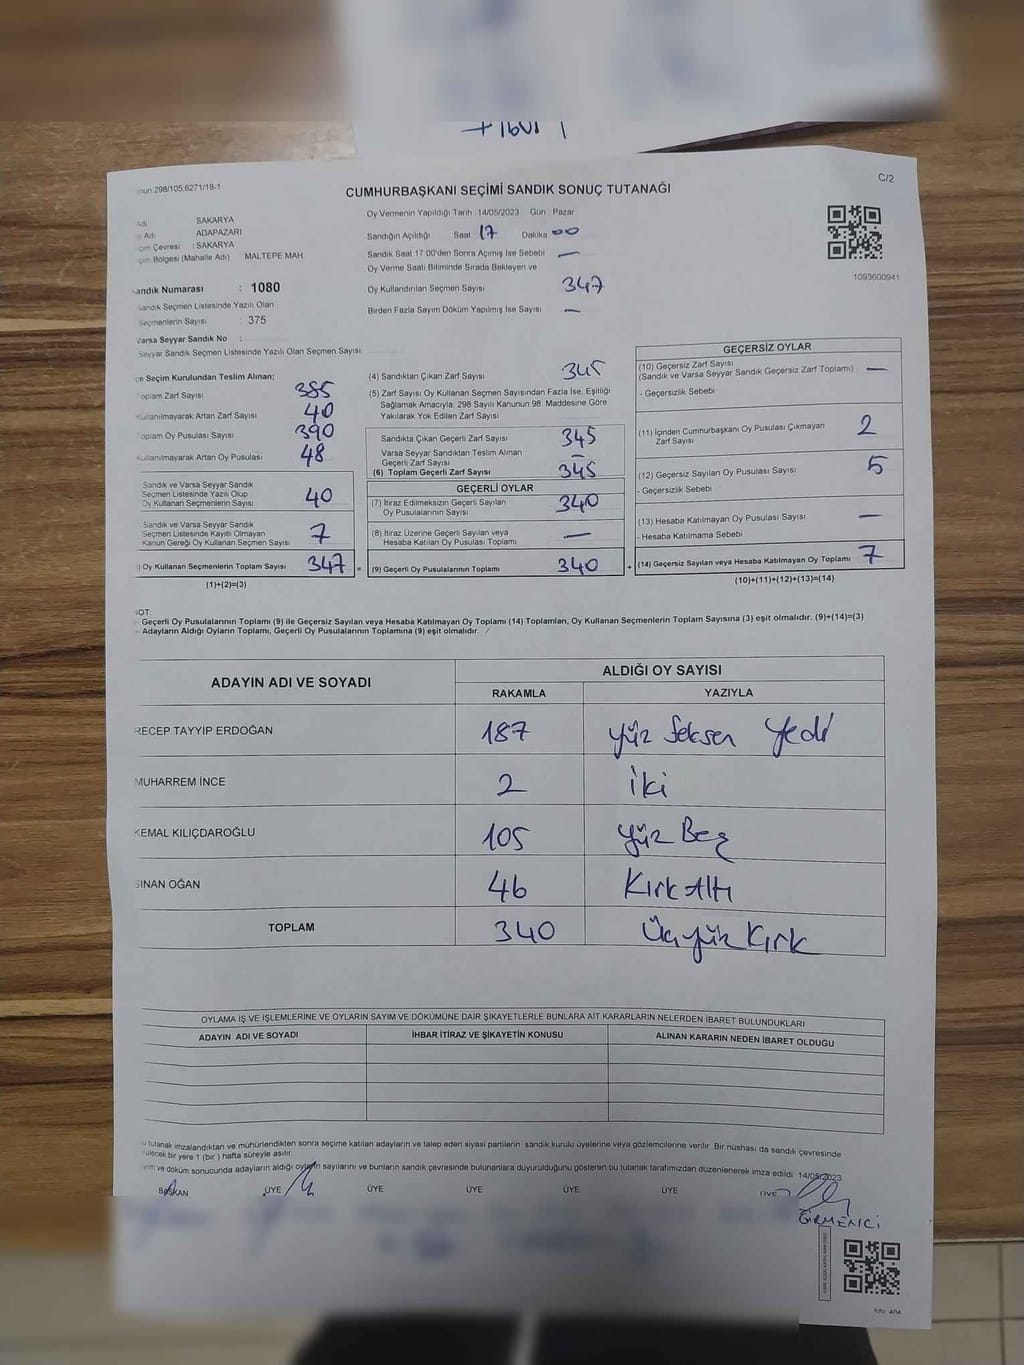 298/105,6271/18-1
C/2
CUMHURBAŞKANI SEÇİMİ SANDIK SONUÇ TUTANAĞI
SAKARYA
Adı ADAPAZARI
Çevresi : SAKARYA
Bölgesi (Mahalle Adı) MALTEPE MAH.
Sandık Numarası : 1080
Sandık Seçmen Listesinde Yazılı Olan
Seçmenlerin Sayısı : 375
Varsa Seyyar Sandık No :
Seyyar Sandık Seçmen Listesinde Yazılı Olan Seçmen Sayısı
Oy Vermenin Yapıldığı Tarih 14/05/2023 Gün Pazar
Sandığın Açıldığı Saat 17 Dakika 00
Sandık Saat 17:00'den Sonra Açımış İse Sebebi —
Oy Verme Saati Bitiminde Sırada Bekleyen ve
Oy Kullandırılan Seçmen Sayısı 347
Birden Fazla Sayım Döküm Yapılmış İse Sayısı —
1093600941
İlçe Seçim Kurulundan Teslim Alınan;
Toplam Zarf Sayısı 385
Kullanılmayarak Artan Zarf Sayısı 40
Toplam Oy Pusulası Sayısı 390
Kullanılmayarak Artan Oy Pusulası 48
Sandık ve Varsa Seyyar Sandık
Seçmen Listesinde Yazılı Olup
Oy Kullanan Seçmenlerin Sayısı 40
Sandık ve Varsa Seyyar Sandık
Seçmen Listesinde Kayıtlı Olmayan
Kanun Gereği Oy Kullanan Seçmen Sayısı 7
Oy Kullanan Seçmenlerin Toplam Sayısı 347 =
(1)+(2)=(3)
(4) Sandıktan Çıkan Zarf Sayısı 345
(5) Zarf Sayısı Oy Kullanan Seçmen Sayısından Fazla İse, Eşitliği
Sağlamak Amacıyla, 298 Sayılı Kanunun 98. Maddesine Göre
Yakılarak Yok Edilen Zarf Sayısı
Sandıkta Çıkan Geçerli Zarf Sayısı 345
Varsa Seyyar Sandıktan Teslim Alınan
Geçerli Zarf Sayısı —
(6) Toplam Geçerli Zarf Sayısı 345
GEÇERLİ OYLAR
(7) İtiraz Edilmeksizin Geçerli Sayılan
Oy Pusulalarının Sayısı 340
(8) İtiraz Üzerine Geçerli Sayılan veya
Hesaba Katılan Oy Pusulası Toplamı —
(9) Geçerli Oy Pusulalarının Toplamı 340 +
GEÇERSİZ OYLAR
(10) Geçersiz Zarf Sayısı
(Sandık ve Varsa Seyyar Sandık Geçersiz Zarf Toplamı) —
- Geçersizlik Sebebi
(11) İçinden Cumhurbaşkanı Oy Pusulası Çıkmayan
Zarf Sayısı 2
(12) Geçersiz Sayılan Oy Pusulası Sayısı 5
- Geçersizlik Sebebi
(13) Hesaba Katılmayan Oy Pusulası Sayısı —
- Hesaba Katılmama Sebebi
(14) Geçersiz Sayılan veya Hesaba Katılmayan Oy Toplamı 7
(10)+(11)+(12)+(13)=(14)
NOT:
- Geçerli Oy Pusulalarının Toplamı (9) ile Geçersiz Sayılan veya Hesaba Katılmayan Oy Toplamı (14) Toplamları, Oy Kullanan Seçmenlerin Toplam Sayısına (3) eşit olmalıdır. (9)+(14)=(3)
- Adayların Aldığı Oyların Toplamı, Geçerli Oy Pusulalarının Toplamına (9) eşit olmalıdır.
ADAYIN ADI VE SOYADI
ALDIĞI OY SAYISI
RAKAMLA YAZIYLA
RECEP TAYYİP ERDOĞAN 187 Yüz Seksen Yedi
MUHARREM İNCE 2 İki
KEMAL KILIÇDAROĞLU 105 Yüz Beş
SİNAN OĞAN 46 Kırk Altı
TOPLAM 340 Üçyüz Kırk
OYLAMA İŞ VE İŞLEMLERİNE VE OYLARIN SAYIM VE DÖKÜMÜNE DAİR ŞİKAYETLERLE BUNLARA AİT KARARLARIN NELERDEN İBARET BULUNDUKLARI
ADAYIN ADI VE SOYADI İHBAR İTİRAZ VE ŞİKAYETİN KONUSU ALINAN KARARIN NEDEN İBARET OLDUĞU
tutanak imzalandıktan ve mühürlendikten sonra seçime katılan adayların ve talep eden siyasi partilerin sandık kurulu üyelerine veya gözlemcilerine verilir. Bir nüshası da sandık çevresinde
bir yere 1 (bir) hafta süreyle asılır.
ve döküm sonucunda adayların aldığı oyların sayılarını ve bunların sandık çevresinde bulunanlara duyurulduğunu gösteren bu tutanak tarafımızdan düzenlenerek imza edildi. 14/05/2023
BAŞKAN ÜYE ÜYE ÜYE ÜYE ÜYE ÜYE